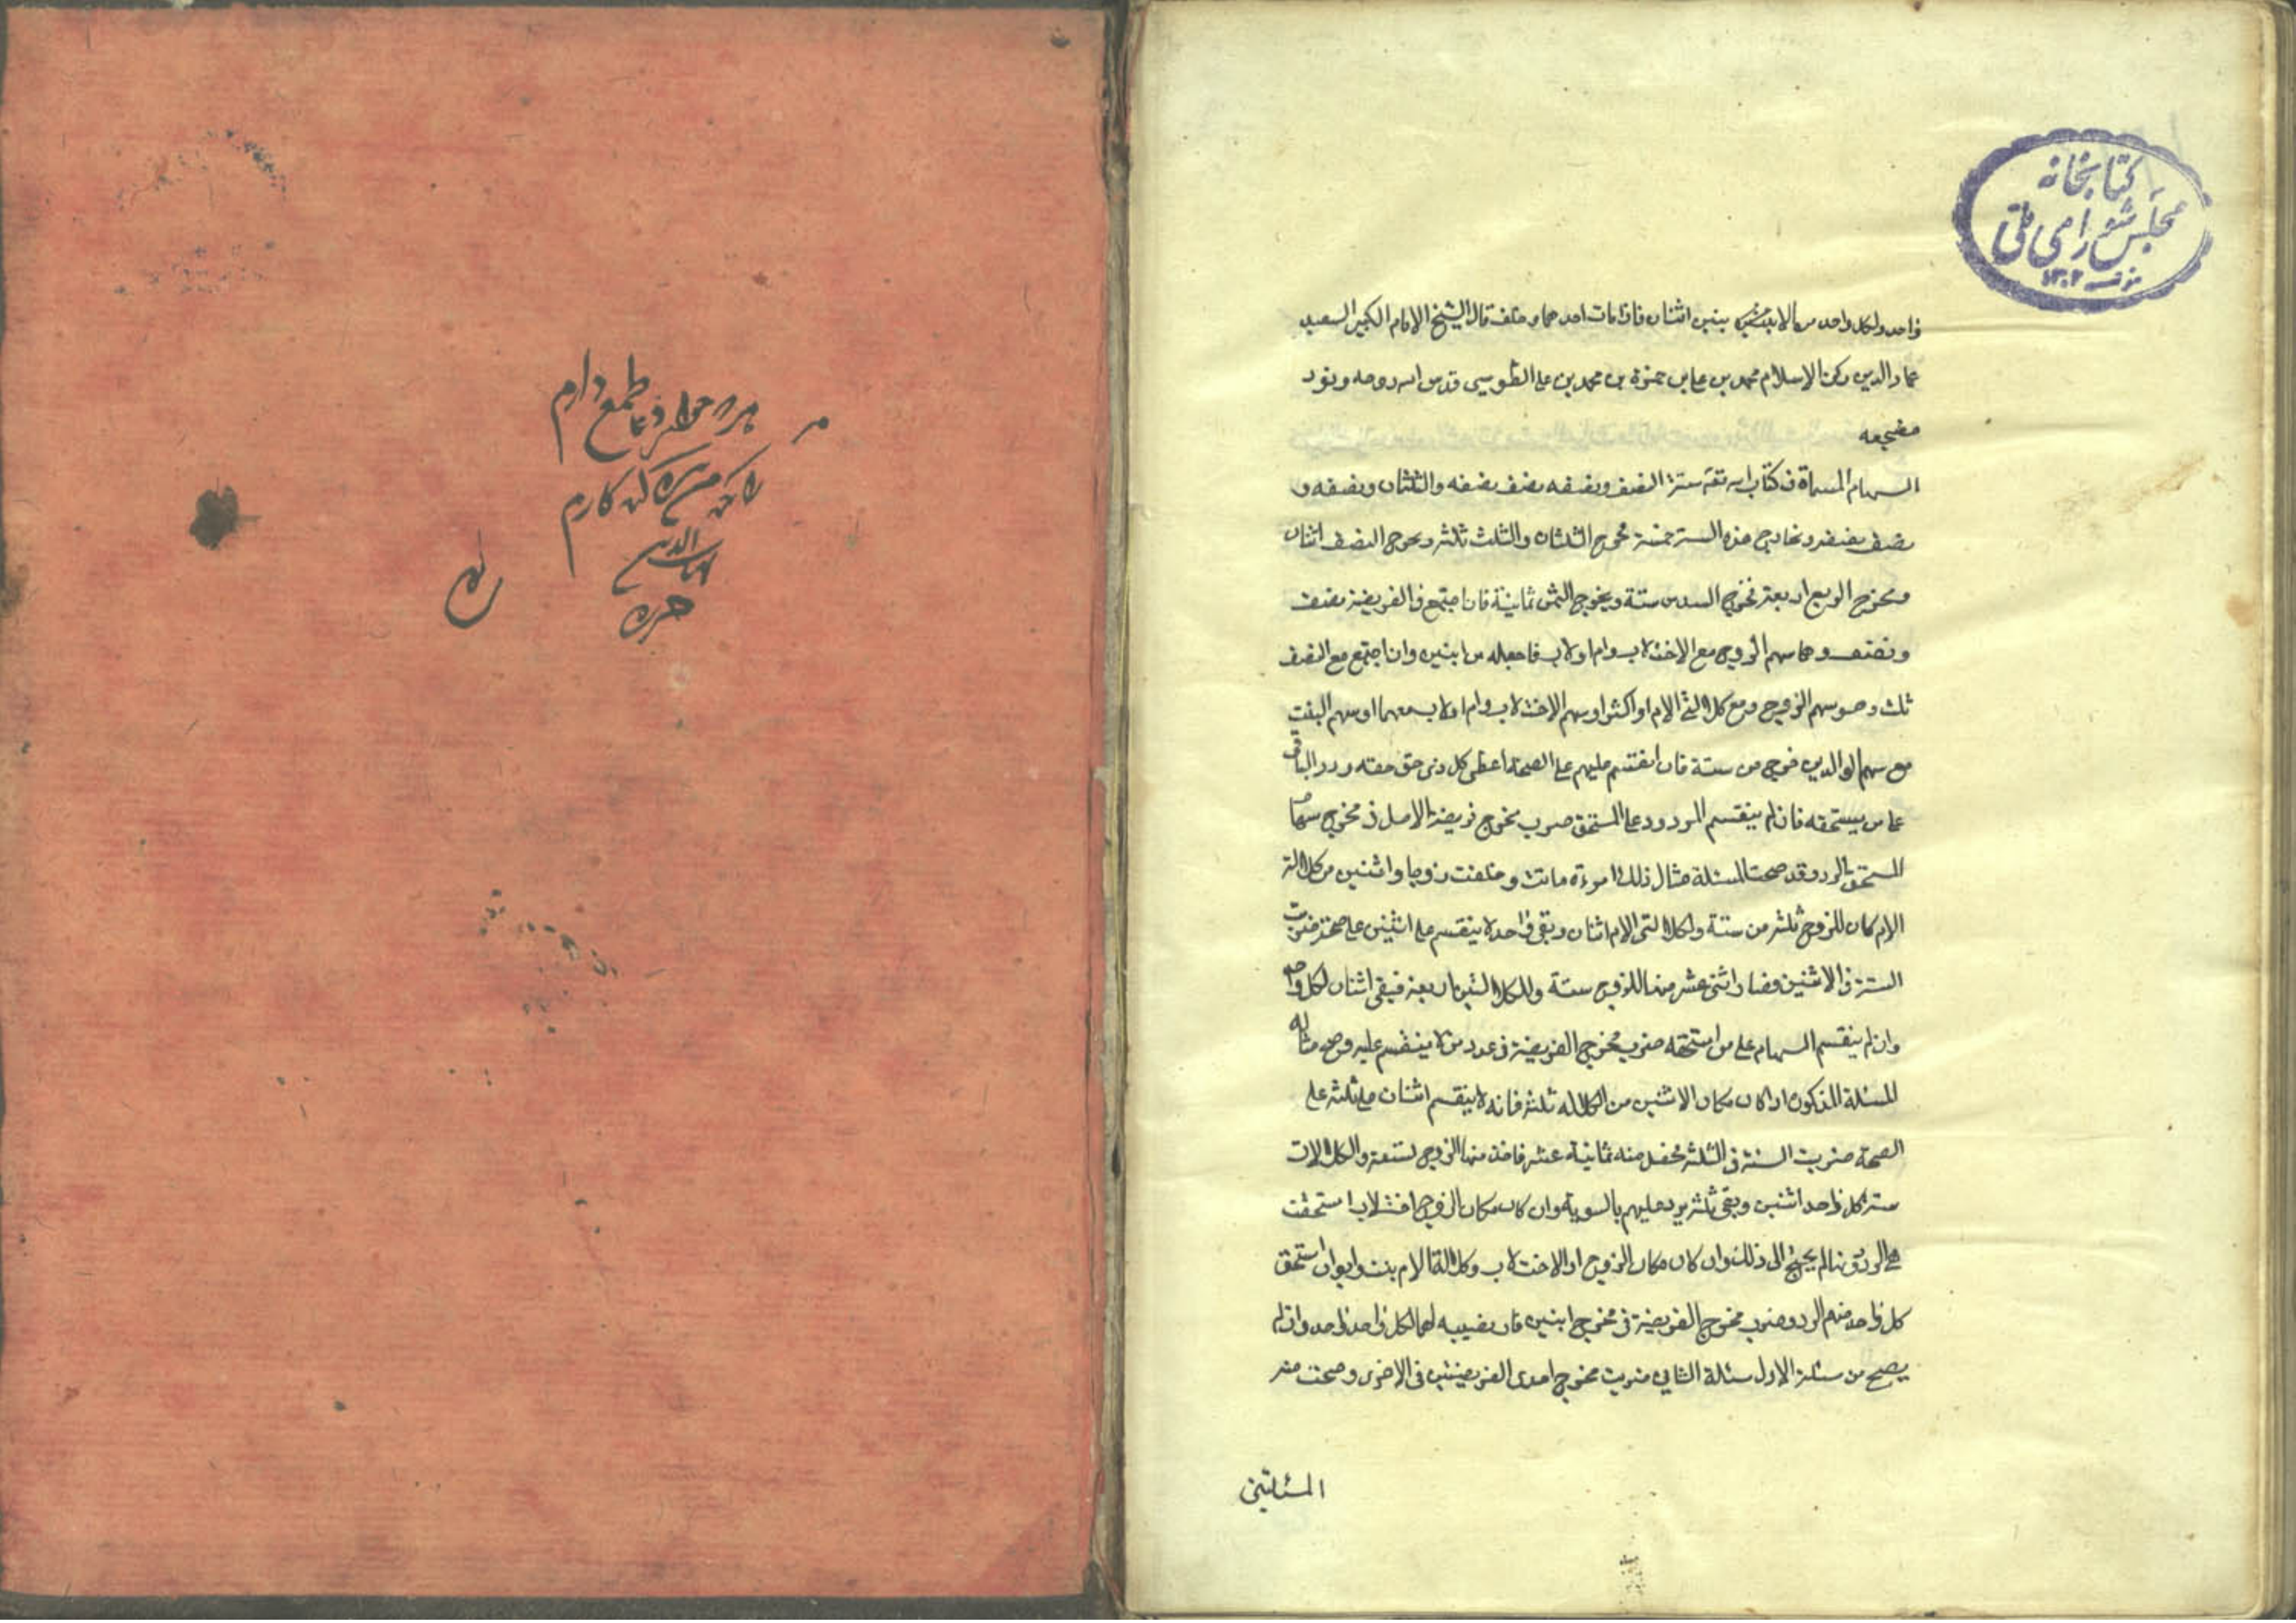 كتابخانه
مجلس شورای ملی
۱۳۰۲
واحد ولكل واحد من الابنين اثنان فاذا مات احدهما وخلف قال الشيخ الامام الكبير السعيد
عماد الدين ركن الاسلام محمد بن علي بن حمزة بن محمد بن علي الطوسي قدس الله روحه ونور
مضجعه
السهام المسماة في كتاب الله تعه ستة النصف ونصفه ونصف نصفه والثلثان ونصفه و
نصف نصفه ومخارج هذه الستة خمسة مخرج الثلثان والثلث ثلثة ومخرج النصف اثنان
ومخرج الربع اربعة ومخرج السدس ستة ومخرج الثمن ثمانية فان اجتمع في الفريضة نصف
ونصف وهما سهم الزوج مع الاخت لاب وام او لاب فاجعله من اثنين وان اجتمع مع النصف
ثلث وهو سهم الزوج مع كلالتي الام او اكثر او سهم الاخت لاب وام او لاب معهما او سهم البنت
مع سهم الوالدين خرج من ستة فان انقسم عليهم على الصحة اعطى كل ذى حق حقه ورد الباقي
على من يستحقه فان لم ينقسم المردود على المستحق ضرب مخرج فريضة الاصل في مخرج سهام
المستحق الرد وقد صحت المسئلة مثال ذلك امرءة ماتت وخلفت زوجا واثنين من كلالة
الام كان للزوج ثلثة من ستة ولكلالتى الام اثنان وبقى واحد لا ينقسم على اثنين على صحة ضربت
الستة في الاثنين فصار اثنى عشر منها للزوج ستة وللكلالتين اربعة فيبقى اثنان لكل واحد
وان لم ينقسم السهام على من استحقه ضرب مخرج الفريضة في عدد من لا ينقسم عليه مثاله
المسئلة المذكورة اذا كان مكان الاثنين من الكلاله ثلثة فانه لا ينقسم اثنان على ثلثة على
الصحة ضربت الستة في الثلثة فحصل منه ثمانية عشر فاخذ منها الزوج تسعة والكلالات
ستة كل واحد اثنين وبقى ثلثة يرد عليهم بالسوية وان كان مكان الزوج اخت لاب استحقت
هي الرد لم يحتج الى ذلك وان كان مكان الزوج او الاخت لاب وكلالة الام بنت وابوان استحق
كل واحد منهم الرد وضرب مخرج الفريضة في مخرج اثنين فان نصيبه لهما لكل واحد واحد وان لم
يصح من مسئلة الاول مسئلة الثاني ضربت مخرج احدى الفريضتين في الاخرى وصحت منه
المسئلتين
طمع دارم
کارم